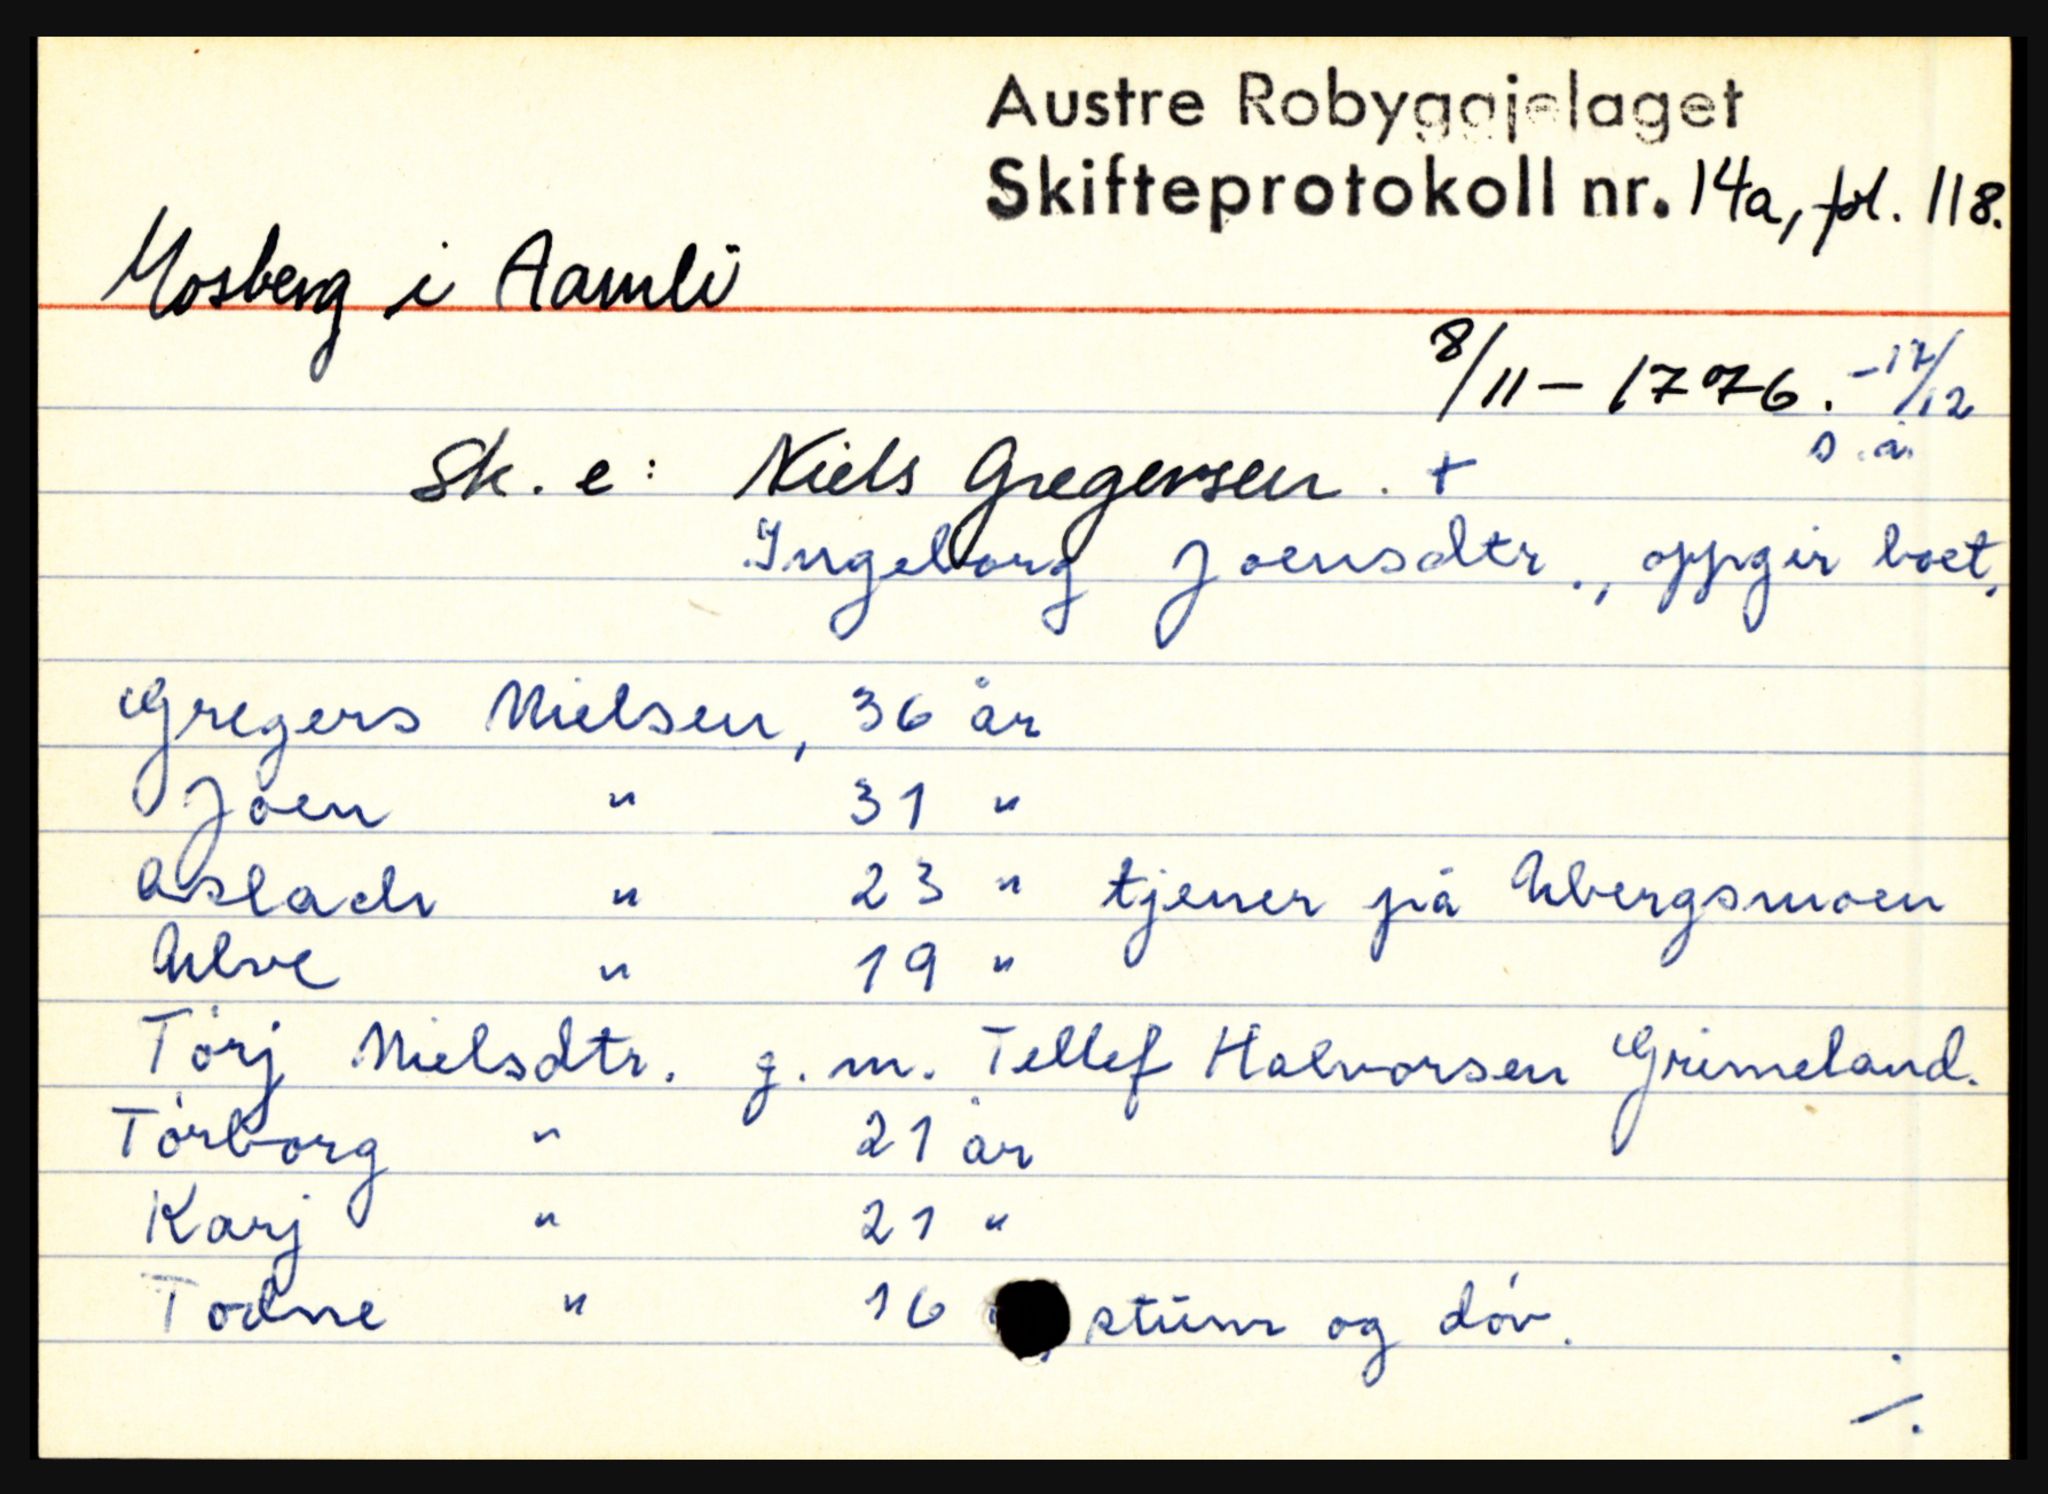 Austre Robyggjelaget
Skifteprotokoll nr. 14a, fol. 118.
Mosberg i Aamli
8/11 - 1776. - 17/12
s.å.
Sk. e: Niels Gregersen. +
Ingeborg Joensdtr., oppgir boet,
Gregers Nielsen, 36 år
Joen " 31 "
Aslach " 23 " tjener på Ubergsmoen
Ulve " 19 "
Torj Nielsdtr. g. m. Tellef Halvorsen Grimeland.
Torborg " 21 år
Karj " 21 "
Todne " 16 ", stum og döv.
./.